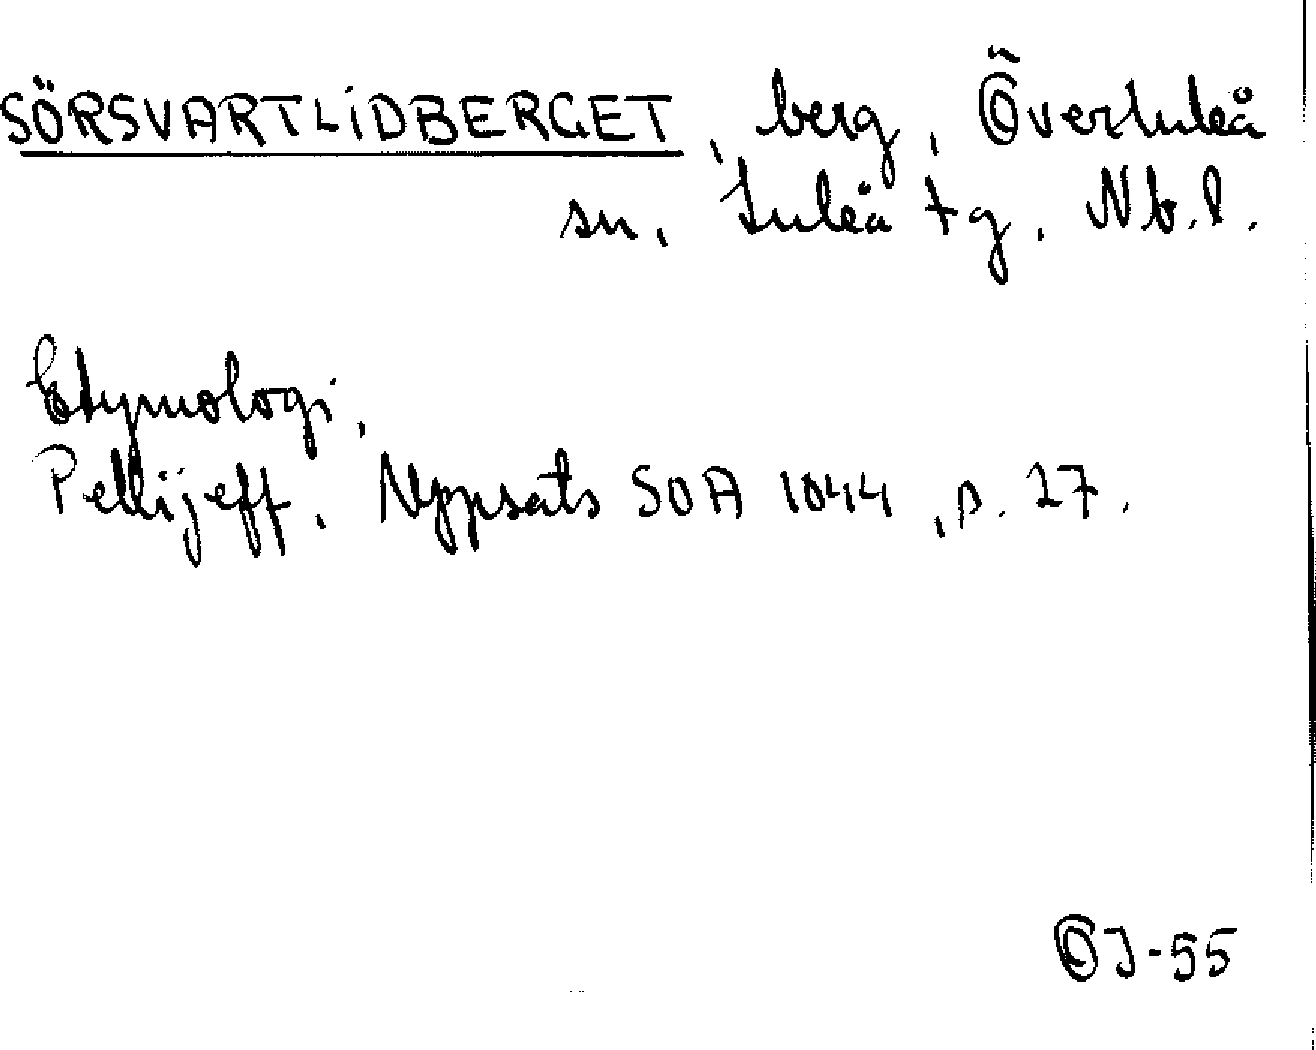 SÖRSVARTLIDBERGET, berg, Överluleå
sn, Luleå tg, Nb.l.
Etymologi,
Pellijeff, Uppsats SOA 1044, s. 27.
OJ-55